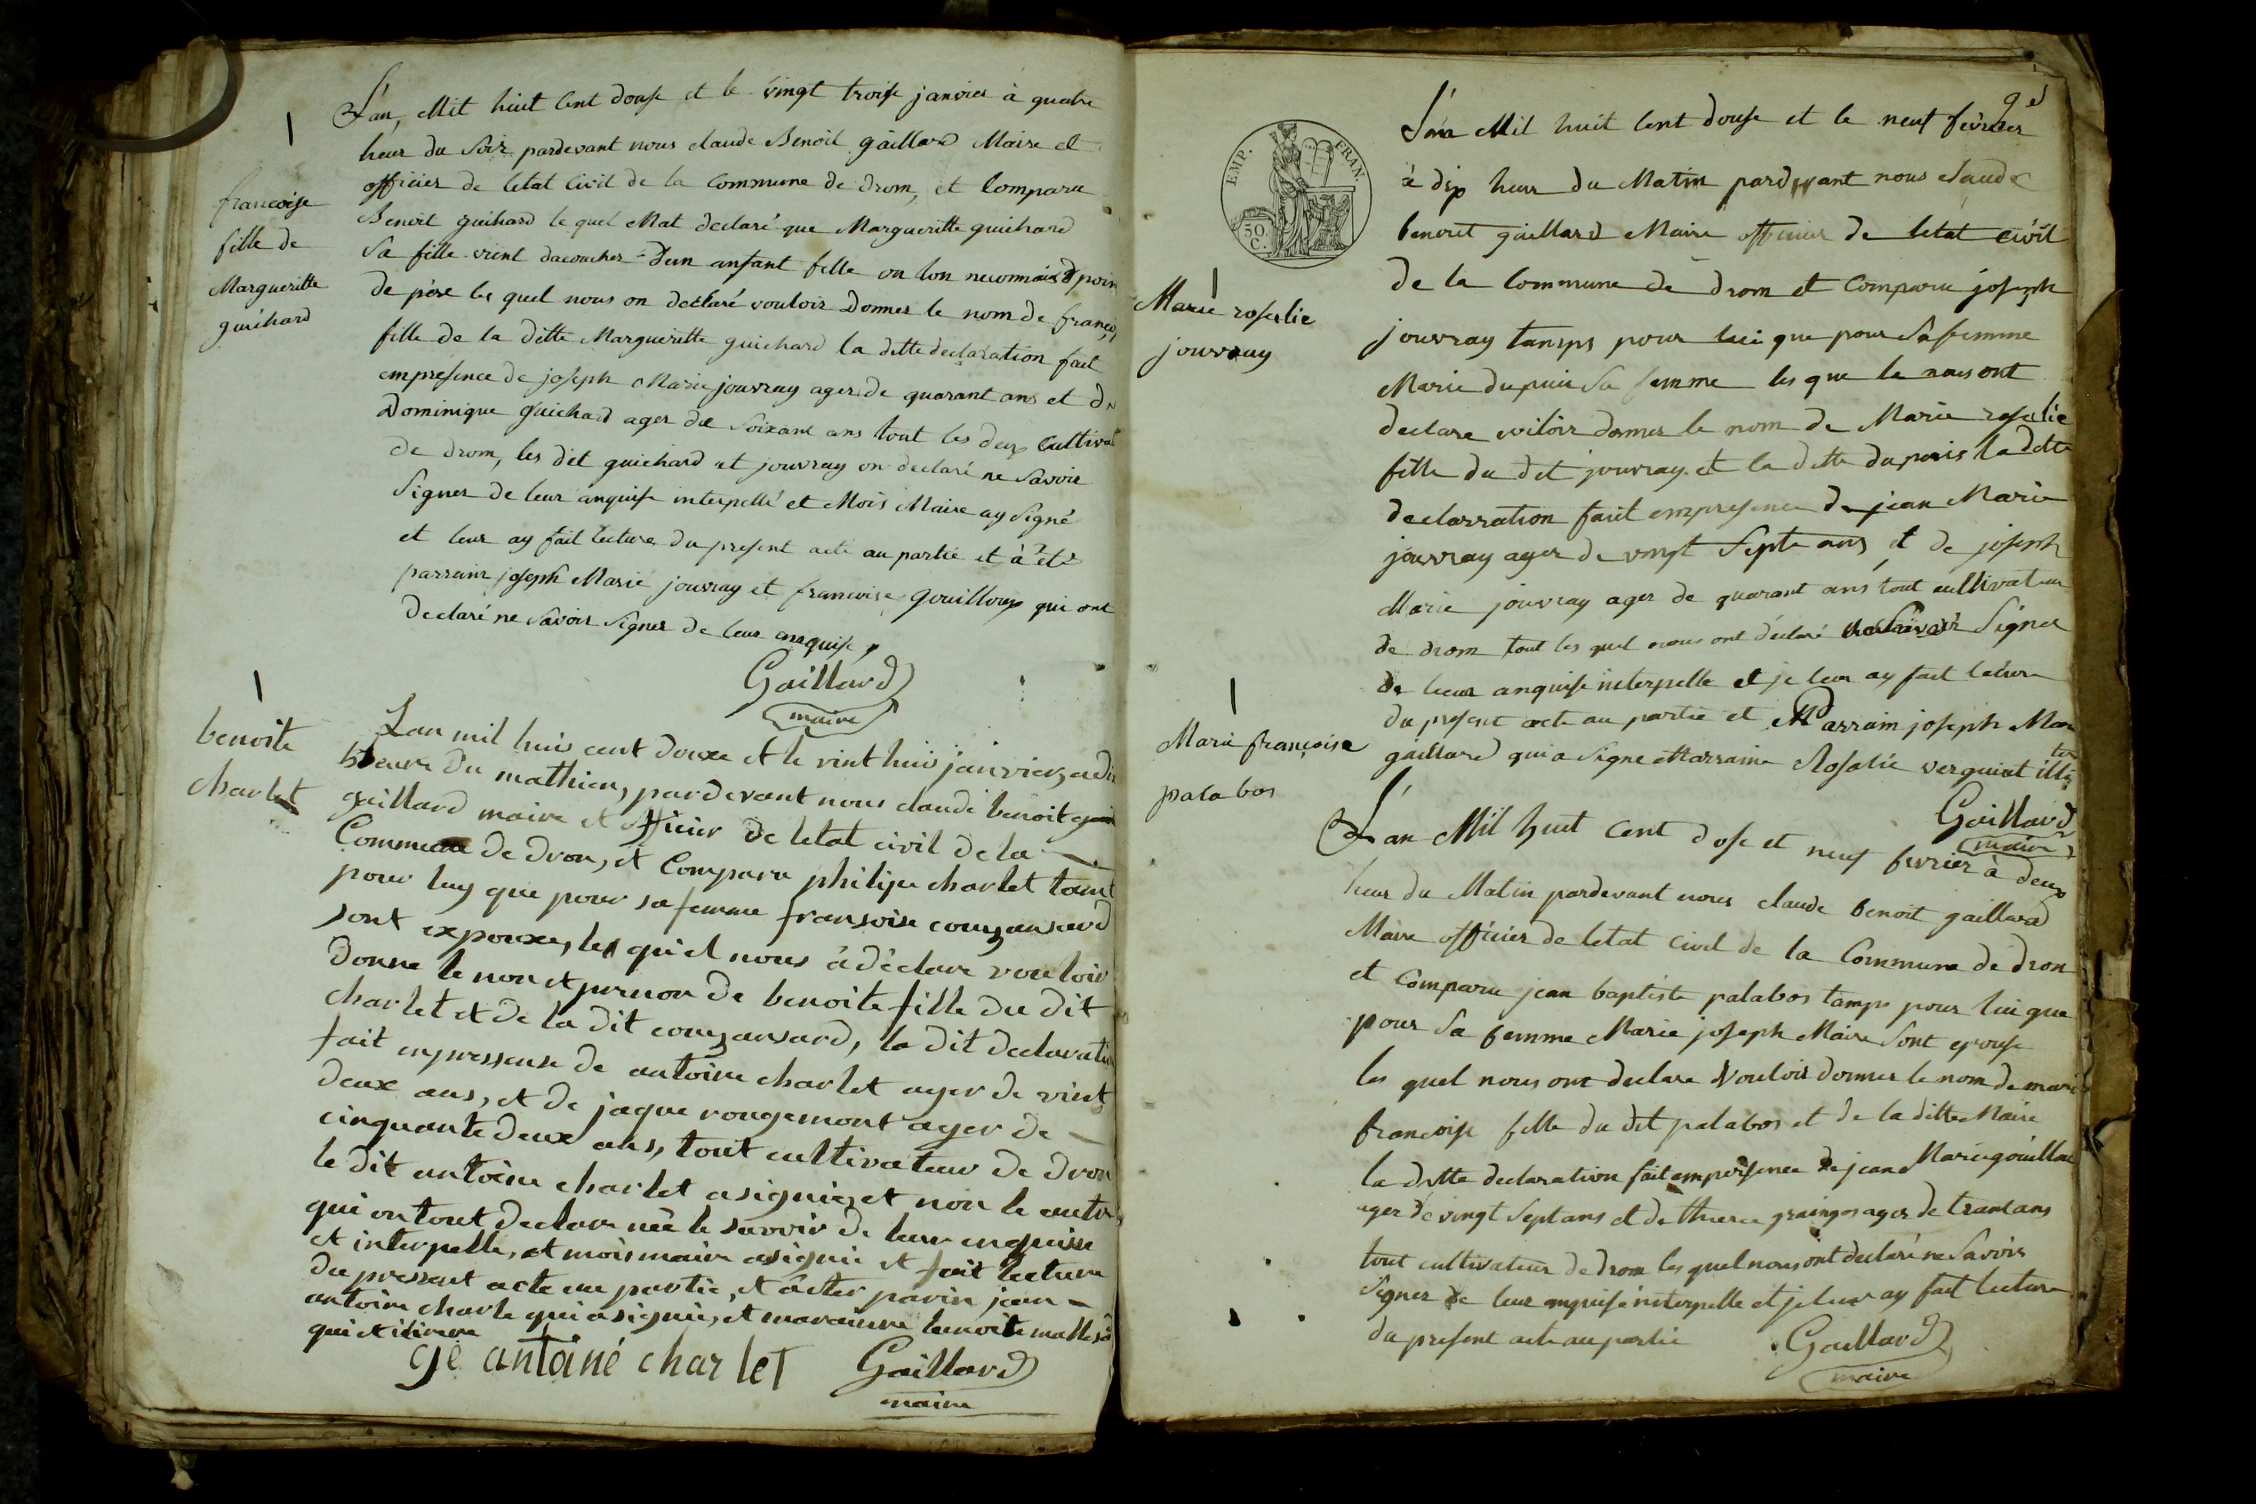 francoise
fille de
Margueritte
guichard
L'an, Mil huit Cent douse et le vingt troise janvier à quatre
heur du Soir pardevant nous claude Benoit gaillard Maire et
officier de letat Civil de la Commune de drom, et Comparu
Benoit guichard le quel Mat declaré que Margueritte guichard
Sa fille vient dacoucher d'un anfant fille on lon neconnais poin
de père les quel nous on declaré vouloir Donner le nom de françois
fille de la ditte Margueritte guichard la ditte declaration fait
empresence de joseph Marie jouvray ager de quarant ans et de
Dominique guichard ager de Soixant ans tout les deux Cultivat
de drom, les dit guichard et jouvray on declaré ne Savoir
Signer de leur anquise interpellé et Mois Maire ay Signé
et leur ay fait lecture du present acte au partie et à été
parrain joseph Marie jouvray et francoise gouilloux qui ont
declaré ne Savoir Signer de leur anquise
Gaillard
maire
benoite
charlet
Lan mil huis cent douxe et le vint huis janvier, a dix
heure du mathien, pardevant nous claude benoit
gaillard maire et officier de letat civil de la
Commune de dron, et Comparu philipe charlet tant
pour luy que pour sa femme fransoise couzansard
sont expouxe, les quel nous à déclare vouloir
donne le non et prenon de benoite fille du dit
charlet et de la dit couzansard, la dit declaratio
fait enpressense de antoine charlet ager de vint
deux ans, et de jaque rougemont ager de
cinquante deux ans, tout cultivateur de dron
le dit antoine charlet a signie, et non le autre
qui on tout declare née le savoir de leur enquise
et interpelle, et mois maire a signie et fait lecture
du pressent acte au partie, et à eter parin jean
antoine charle qui a signie, et maraine benoite
qui et
ge antainé charlet
Gaillard
maire
9e
EMP. FRAN.
50.
C.
Marie rosalie
jouvray
L'an Mil huit Cent douse et le neuf fevrier
à dix heur du Matin pardevant nous claude
benoit gaillard Maire officier de letat civil
de la Commune de drom et Comparu joseph
jouvray tamps pour lui que pour Sa femme
Marie dupuis Sa femme les que le nous ont
declare voiloir donner le nom de Marie rosalie
fille du dit jouvray et la ditte dupuis la ditte
declarration fait empresence de jean Marie
jouvray ager de vingt Septe ans et de joseph
Marie jouvray ager de quarant ans tout cultivateur
de drom tout les quel nous ont déclaré Signer
de leur anquise interpelle et je leur ay fait lecture
du present acte au partie et Parrain joseph Mar
gaillard qui a Signe Marraine Rosalie
Gaillard
maire
Marie françoise
palabos
L'an Mil huit Cent dose et neuf fevrier à deux
heur du Matin pardevant nous claude benoit gaillard
Maire officier de letat Civil de la Commune de dron
et Comparu jean baptiste palabos tamps pour lui que
pour Sa femme Marie joseph Maire Sont epouse
les quel nous ont declare Vouloir donner le nom de marie
francoise fille du dit palabos et de la ditte Maire
la ditte declaration fait empersence de jean Marie gouillou
ager de vingt Sept ans et de ager de trant ans
tout cultivateur de drom les quel nous ont declaré ne Savoir
Signer de leur anquise interpelle et je leur ay fait lecture
du present acte au partie
Gaillard
maire